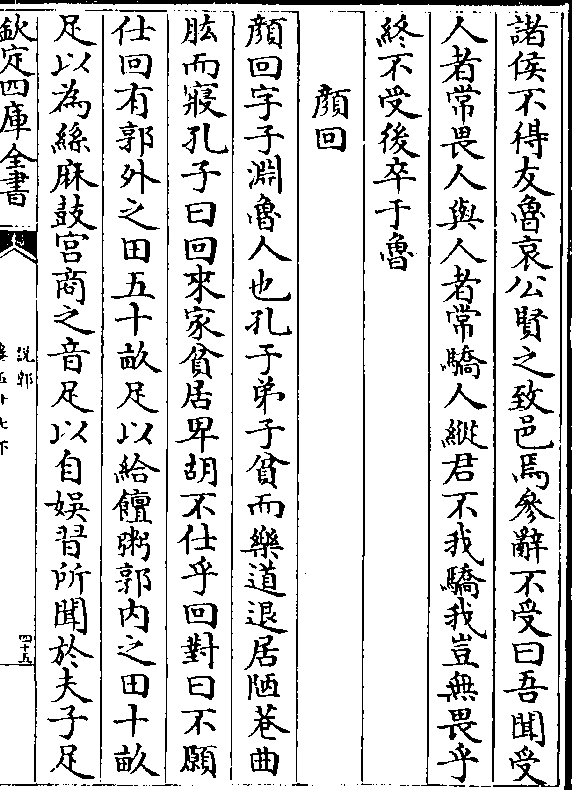 諸侯不得友魯哀公賢之致邑焉參辭不受曰吾聞受
人者常畏人與人者常驕人縱君不我驕我豈無畏乎
終不受後卒于魯
顔回
顔回字子淵魯人也孔子弟子貧而樂道退居陋巷曲
肱而寢孔子曰回來家貧居卑胡不仕乎回對曰不願
仕回有郭外之田五十畝足以給饘粥郭内之田十畝
足以為絲麻鼓宫商之音足以自娯習所聞於夫子足
欽定四庫全書
說郛
卷五十七下
四十五